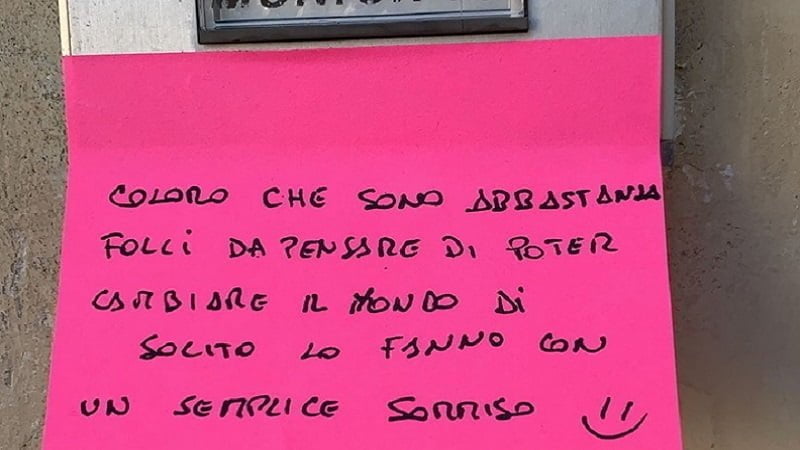 COLORO CHE SONO ABBASTANZA
FOLLI DA PENSARE DI POTER
CAMBIARE IL MONDO DI
SOLITO LO FANNO CON
UN SEMPLICE SORRISO